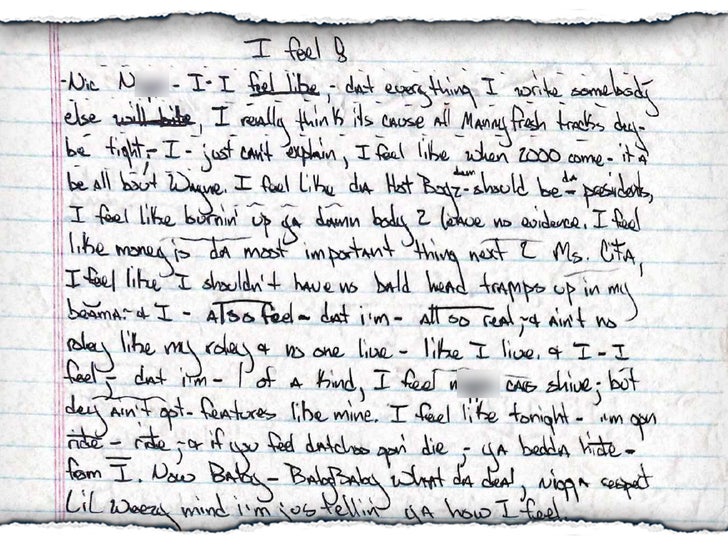 I feel
-Nic N - I - I feel like, - dat everything I write somebody
else will bite, I really think its cause all Mannyfresh tracks dey-
be tight, - I - just can't explain, I feel like when 2000 come - it'a
be all bout Wayne. I feel like da Hot Boyz - should be - da presidents,
I feel like burnin' up ya damn body 2 leave no evidence. I feel
like money is da most important thing next 2 Ms. Cita,
I feel like I shouldn't have no bald head tramps up in my
beama - & I - also feel - dat i'm - all so real, - & ain't no
roley like my roley & no one live - like I live. & I - I
feel, - dat i'm - 1 of a kind, I feel n cars shine, - but
dey ain't got - features like mine. I feel like tonight - i'm gon
ride - ride, - & if you feel datchoo gon' die, - ya bedda hide -
from I. Now Baby - BabyBaby what da deal, nigga respect
Lil Weezy mind i'm jus tellin' ya how I feel.